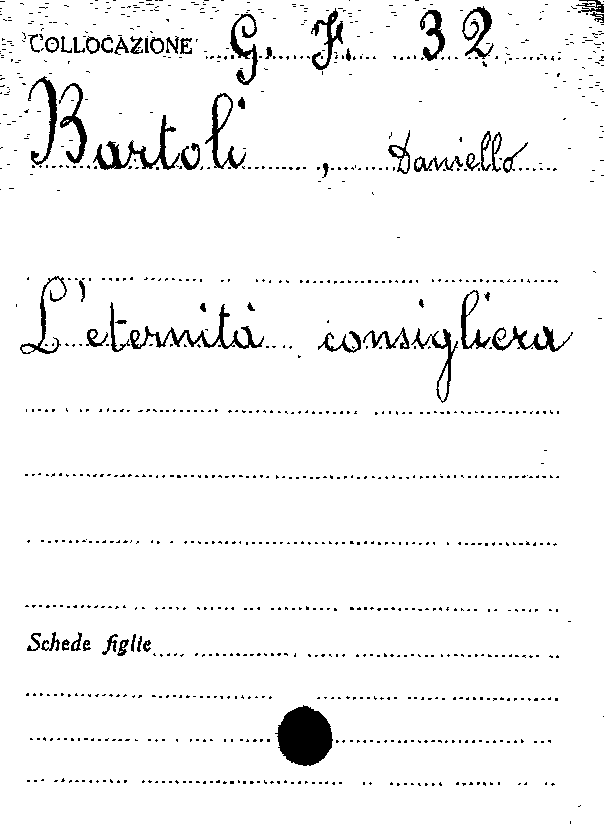 COLLOCAZIONE G. F. 32
Bartoli, Daniello
L'eternità consigliera
Schede figlie